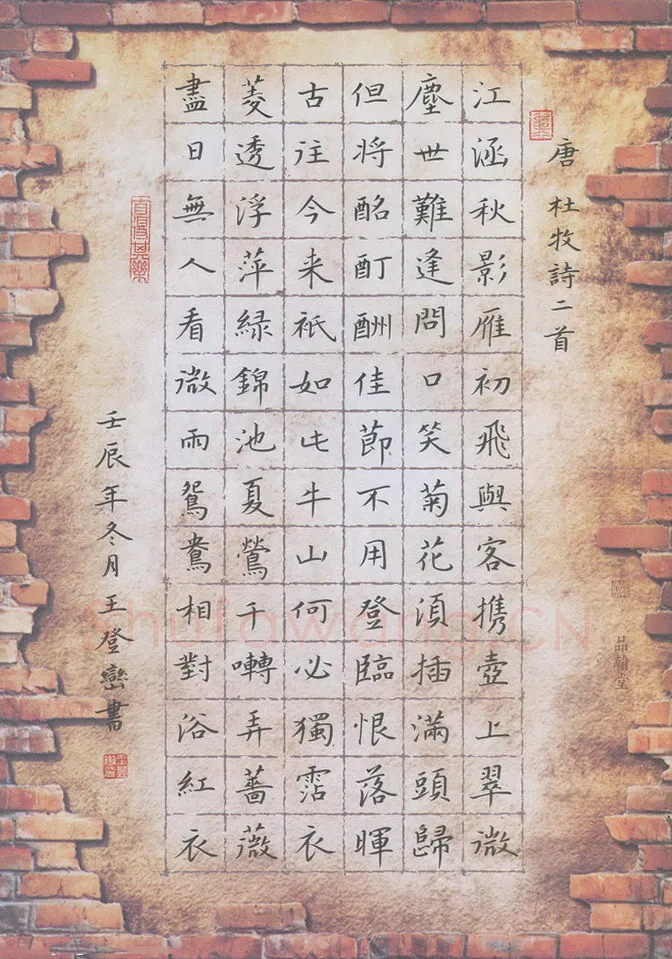 唐杜牧詩二首
江涵秋影雁初飛與客携壺上翠微
塵世難逢問口笑菊花須插滿頭歸
但將酩酊酬佳節不用登臨恨落暉
古往今来祇如此牛山何必獨霑衣
菱透浮萍緑錦池夏鶯千囀弄薔薇
盡日無人看微雨鴛鴦相對浴紅衣
壬辰年冬月王登巒書
品翰堂
Shufawang.CN